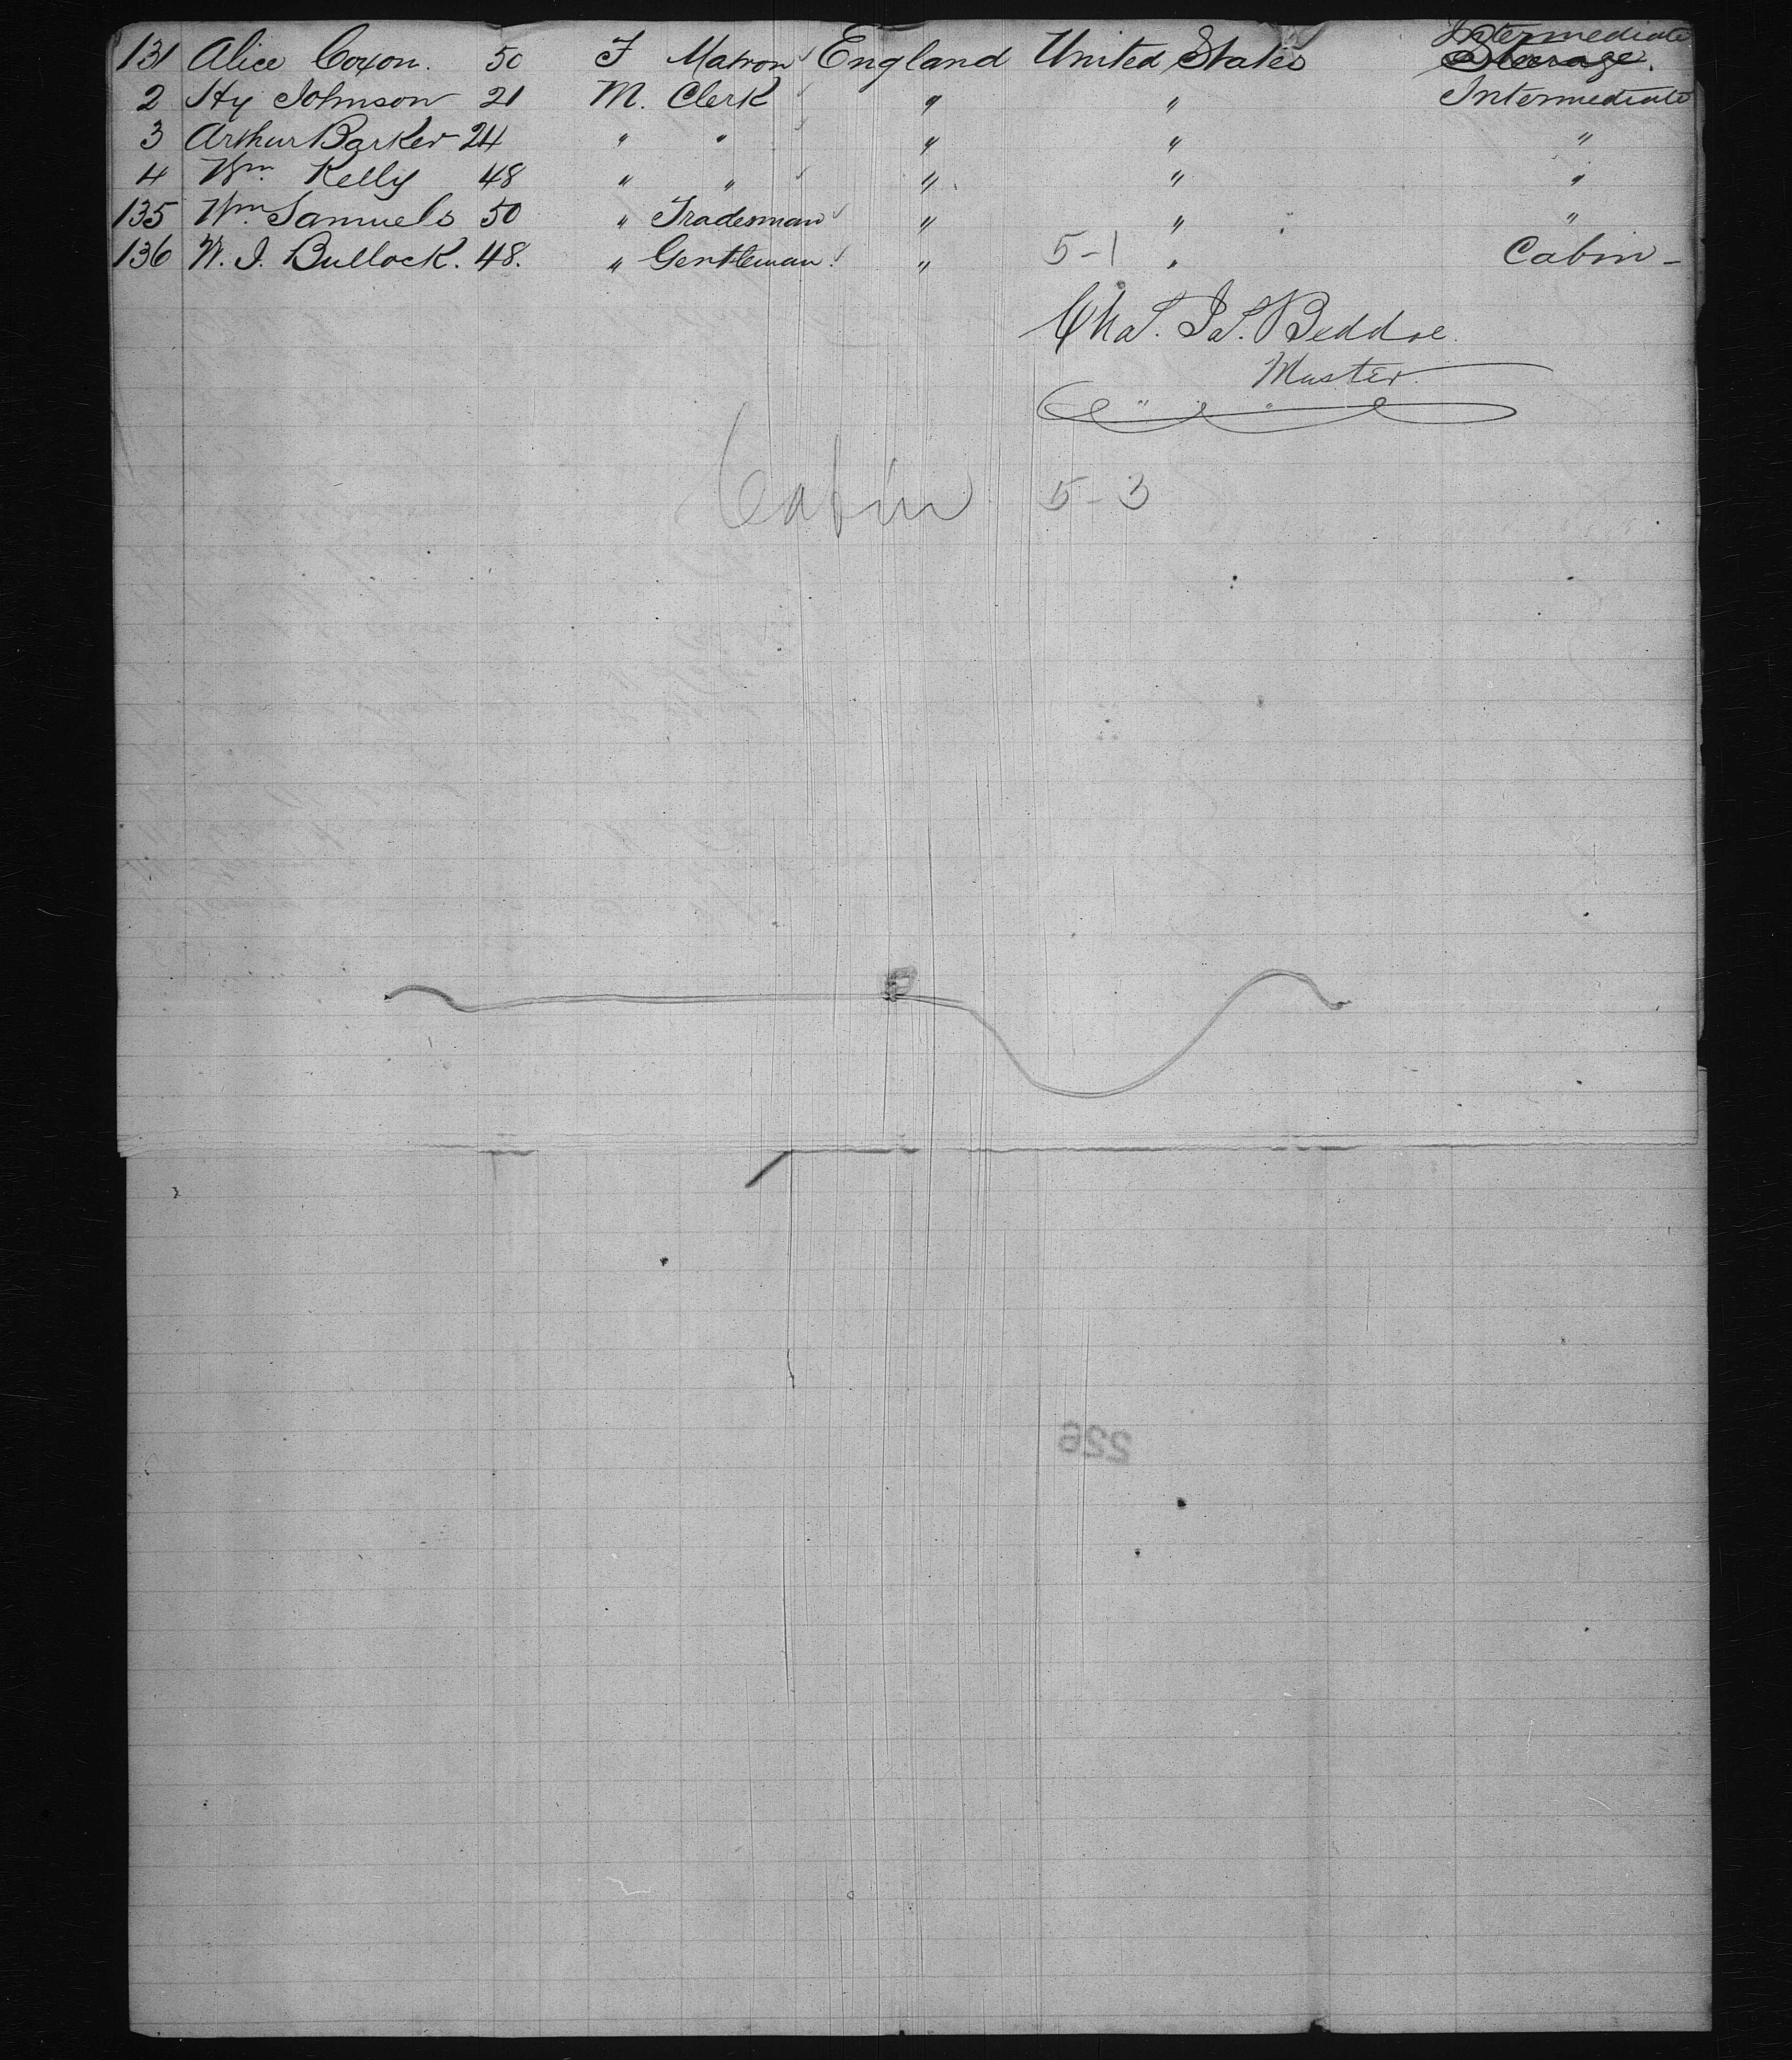 Intermediate
131 Alice Coxon. 50 F Matron England United States Steerage.
2 Hy Johnson 21 M. Clerk " " Intermediate
3 Arthur Barker 24 " " " " "
4 Wm. Kelly 48 " " " " "
135 Wm Samuels 50 " Tradesman " " "
136 W. J. Bullock. 48. " Gentleman. " 5-1 " Cabin -
Chas. Js. Beddoe.
Master.
Cabin 5-3
226